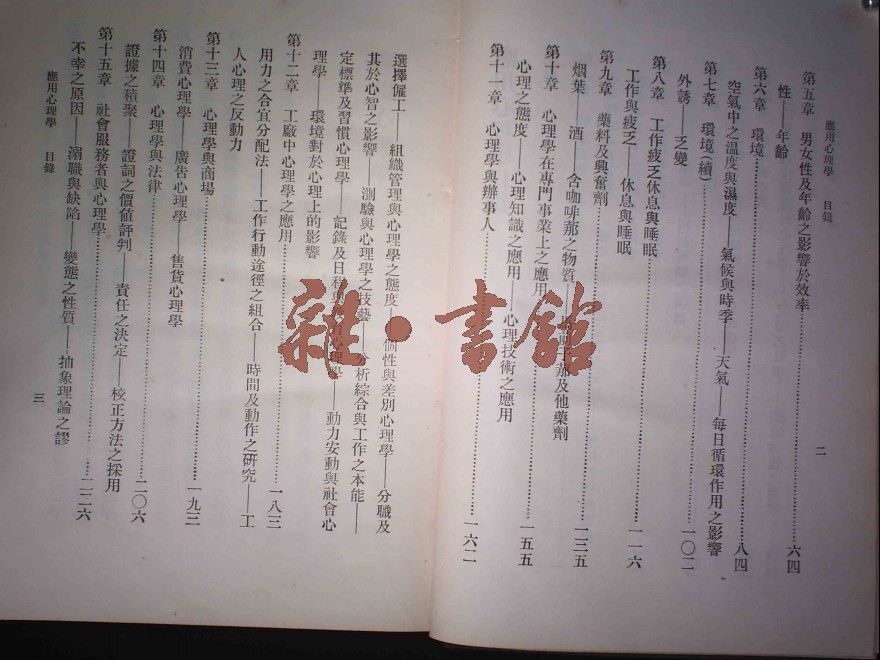 應用心理學 目錄
二
第五章 男女性及年齡之影響於效率 六四
性——年齡
第六章 環境 八四
空氣中之溫度與濕度——氣候與時季——天氣——每日循環作用之影響
第七章 環境(續) 一〇二
外誘——乏變
第八章 工作疲乏休息與睡眠 一一六
工作與疲乏——休息與睡眠
第九章 藥料及興奮劑 一三五
烟葉——酒——含咖啡那之物質 及他藥劑
第十章 心理學在專門事業上之應用 一五五
心理之態度——心理知識之應用——心理技術之應用
第十一章 心理學與辦事人 一六二
選擇傭工——組織管理與心理學之態度——個性與差別心理學——分職及
其於心智之影響——測驗與心理學之技藝——分析綜合與工作之本能——
定標準及習慣心理學——記錄及日程與 心理學——動力安動與社會心
理學——環境對於心理上的影響
第十二章 工廠中心理學之應用 一八三
用力之合宜分配法——工作行動途徑之組合——時間及動作之研究——工
人心理之反動力
第十三章 心理學與商場 一九三
消費心理學——廣告心理學——售貨心理學
第十四章 心理學與法律 二〇六
證據之積聚——證詞之價值評判——責任之決定——校正方法之採用
第十五章 社會服務者與心理學 二二六
不幸之原因——溺職與缺陷——變態之性質——抽象理論之謬
應用心理學 目錄
三
雜·書館